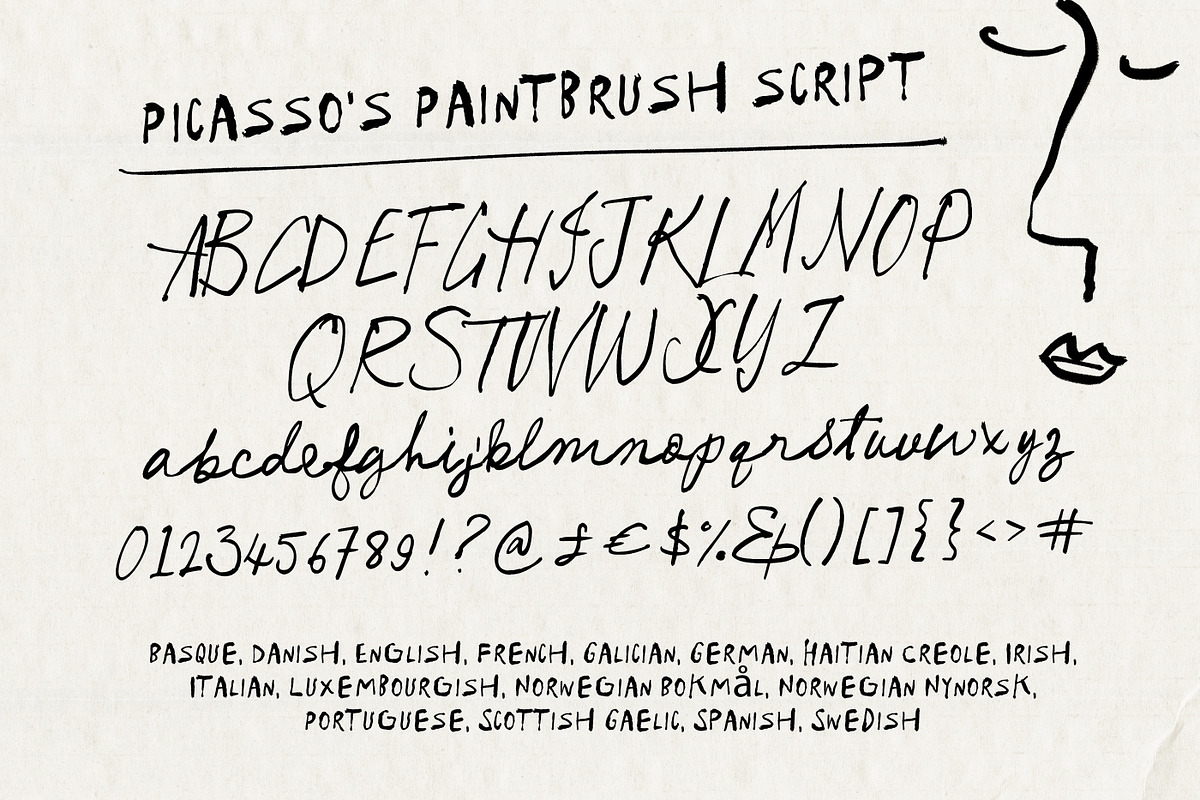 PICASSO'S PAINTBRUSH SCRIPT
ABCDEFGHIJKLMNOP
QRSTUVWXYZ
abcdefghijklmnopqrstuvwxyz
0123456789!?@£€$%&()[]{}<>#
BASQUE, DANISH, ENGLISH, FRENCH, GALICIAN, GERMAN, HAITIAN CREOLE, IRISH,
ITALIAN, LUXEMBOURGISH, NORWEGIAN BOKMåL, NORWEGIAN NYNORSK,
PORTUGUESE, SCOTTISH GAELIC, SPANISH, SWEDISH